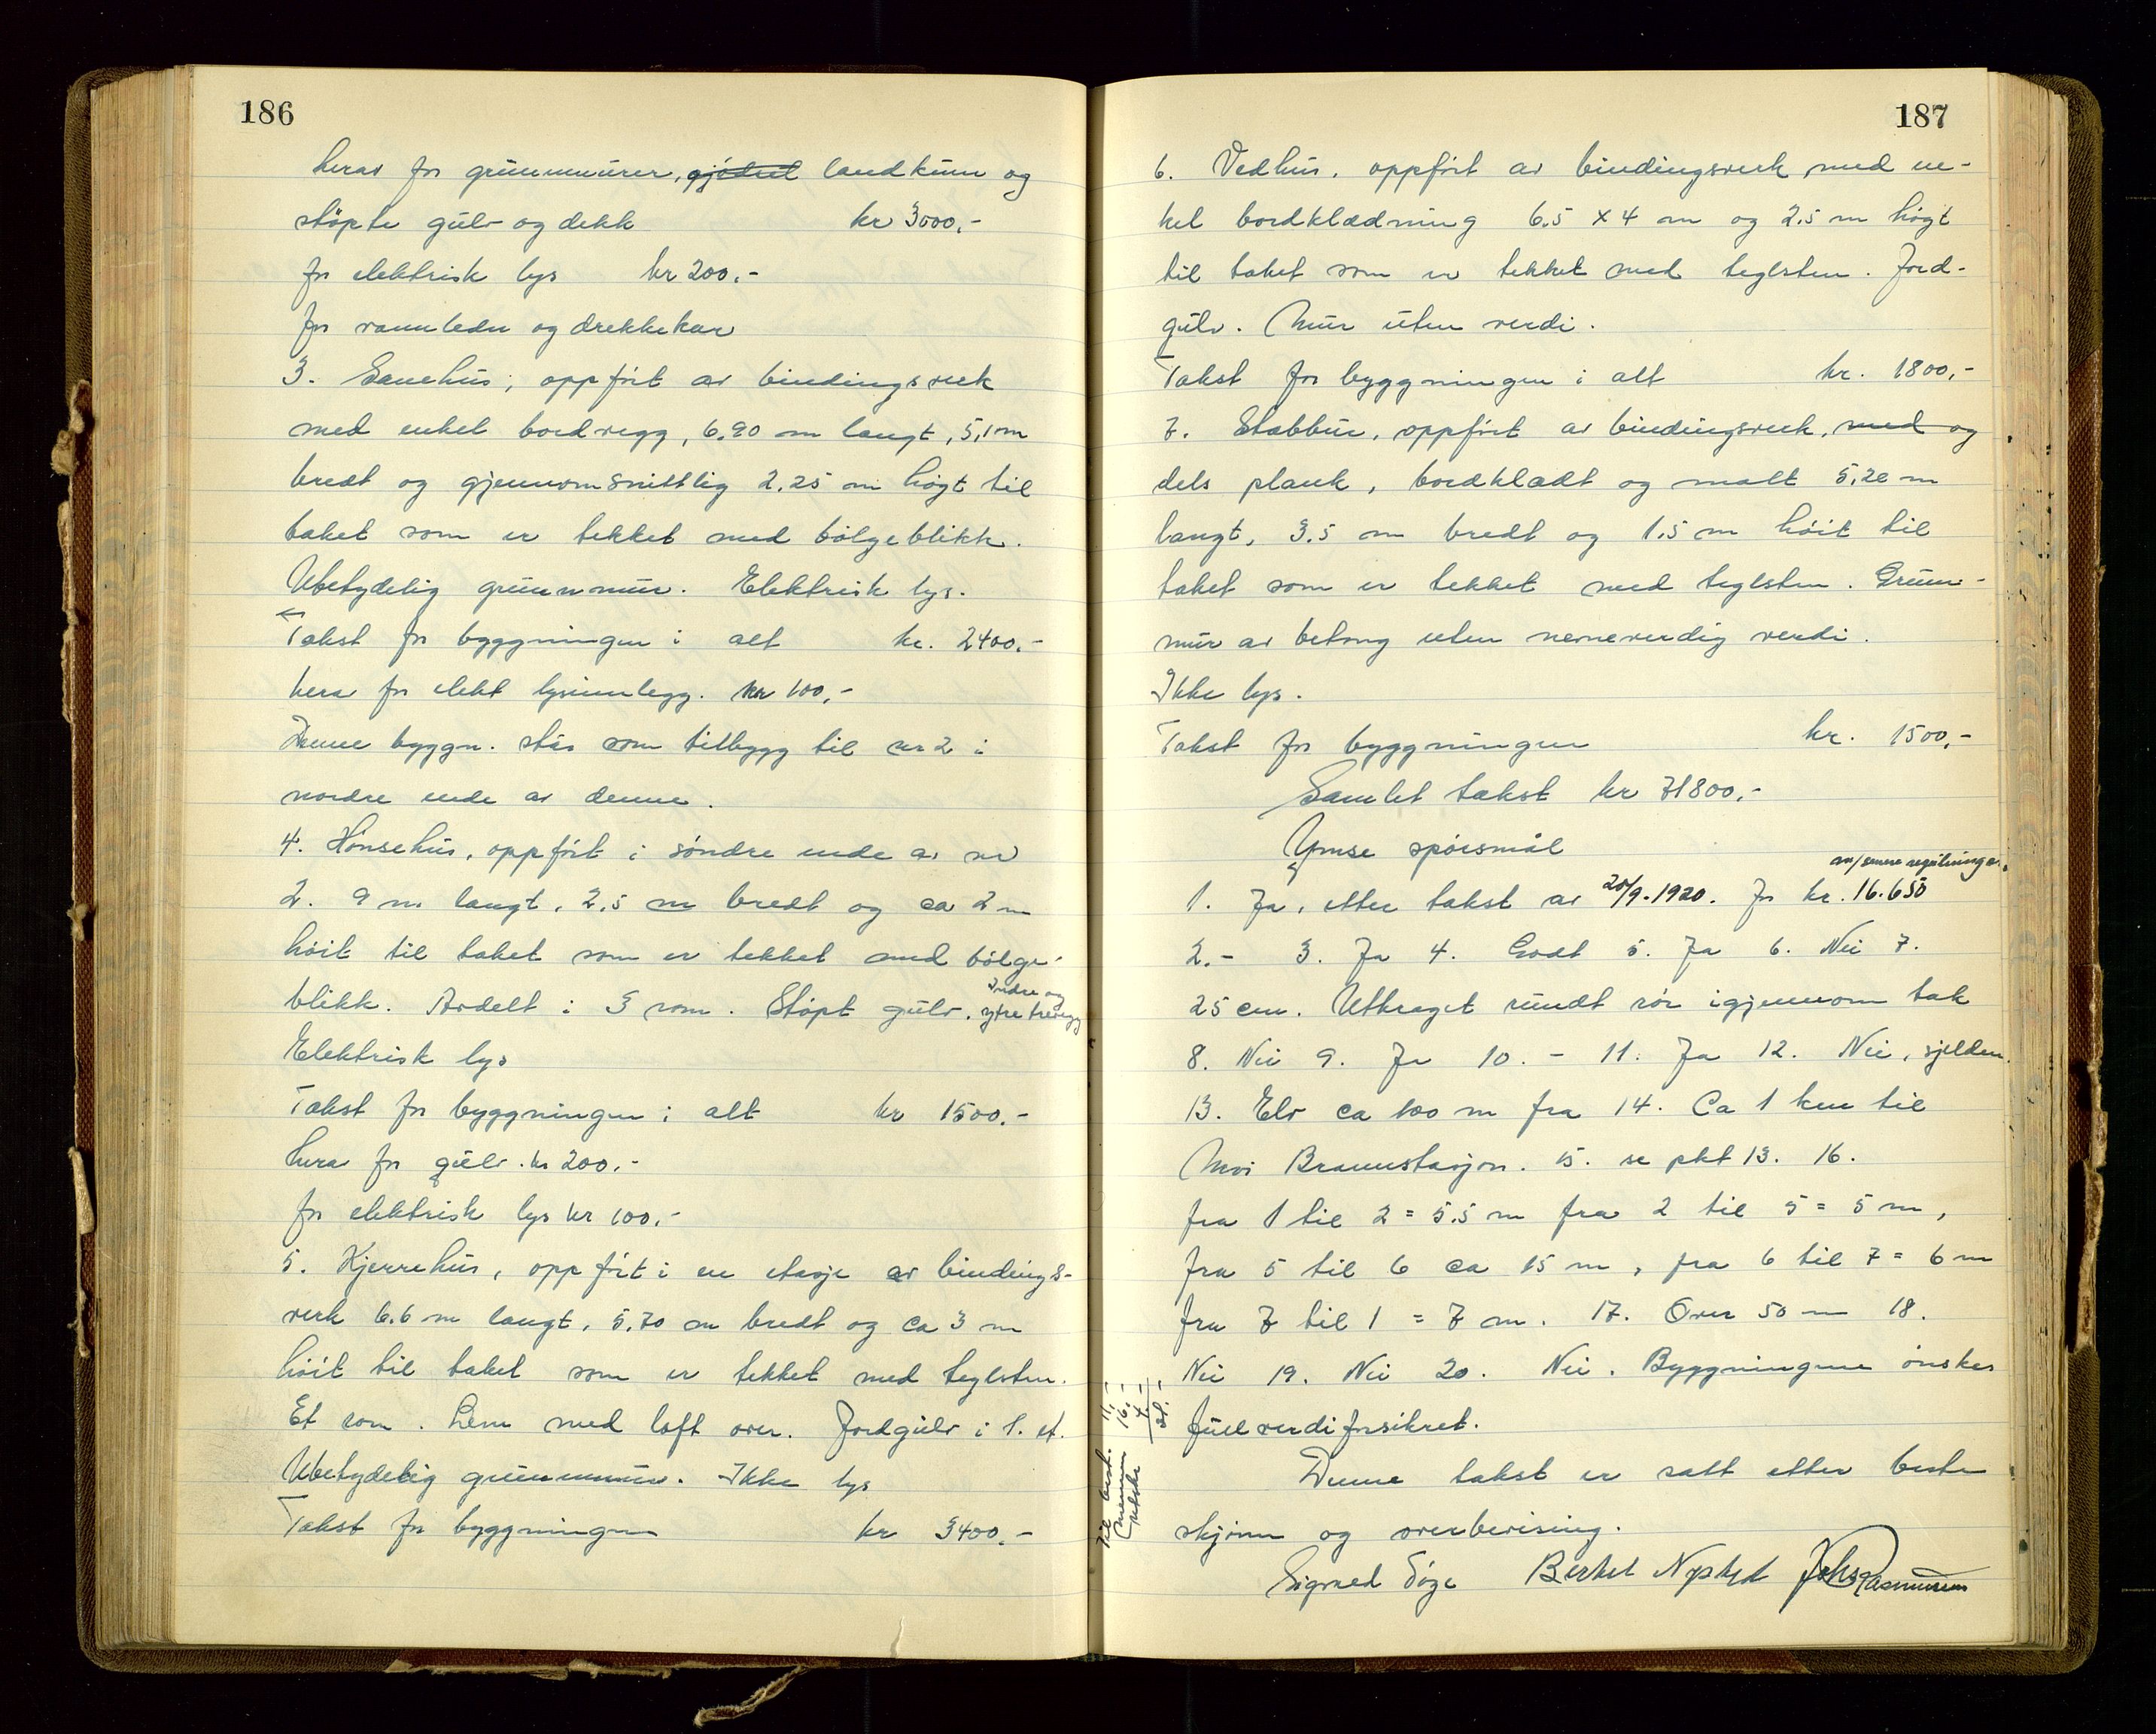 186
herav for grunnmurer, gjødsel landkum og
støpte gulv og dekk kr 3000,-
for elektrisk lys kr 200.-
for vannledn og drekkekar
3. Sauehus, oppført av bindingsverk
med enkel bordvegg, 6.90 m langt, 5,1 m
bredt og gjennomsnittlig 2.25 m høgt til
taket som er tekket med bølgeblikk.
Ubetydelig grunnmur. Elektrisk lys.
Takst for byggningen i alt kr. 2400.-
herav for elekt lysinnlegg. kr 100,-
Denne byggn. står som tilbygg til nr 2 i
nordre ende av denne.
4. Hønsehus, oppført i søndre ende av nr
2. 9 m langt, 2,5 m bredt og ca 2 m
høit til taket som er tekket med bølge-
blikk. Avdelt i 3 rom. Støpt gulv. Indre og ytre trevegg
Elektrisk lys
Takst for byggningen i alt kr 1500.-
herav for gulv. kr 200.-
for elektrisk lys kr 100,-
5. Kjerrehus, oppført i en etasje av bindings-
verk 6.6 m langt, 5,70 m bredt og ca 3 m
høit til taket som er tekket med teglsten.
Et rom. Lem med loft over. Jordgulv i 1. et.
Ubetydelig grunnmur. Ikke lys
Takst for byggningen kr 3400.-
187
6. Vedhus, oppført av bindingsverk med en-
kel bordklædning 6.5 x 4 m og 2.5 m høgt
til taket som er tekket med teglsten. Jord-
gulv. Mur uten verdi.
Takst for byggningen i alt kr. 1800,-
7. Stabbur, oppført av bindingsverk, med og
dels plank, bordklædt og malt 5,20 m
langt, 3.5 m bredt og 1.5 m høit til
taket som er tekket med teglsten. Grunn-
mur av betong uten nevneverdig verdi.
Ikke lys.
Takst for byggningen kr. 1500,-
Samlet takst kr 71800,-
Ymse spørsmål
m/senere reguleringer.
1. Ja, etter takst av 20/9.1920. for kr. 16.650
2.- 3. Ja 4. Godt 5. Ja 6. Nei 7.
25 cm. Utkraget rundt rør igjennom tak
8. Nei 9. Ja 10. - 11. Ja 12. Nei, sjelden.
13. Elv ca 100 m fra 14. Ca 1 km til
Moi Brannstasjon. 15. se pkt 13. 16.
fra 1 til 2 = 5.5 m fra 2 til 5 = 5 m,
fra 5 til 6 ca 15 m, fra 6 til 7 = 6 m
fra 7 til 1 = 7 m. 17. Over 50 m 18.
Nei 19. Nei 20. Nei. Byggningene ønskes
fullverdiforsikret.
Denne takst er satt etter beste
skjønn og overbevisning.
Sigvald Berthel Nystad Johs Rasmussen